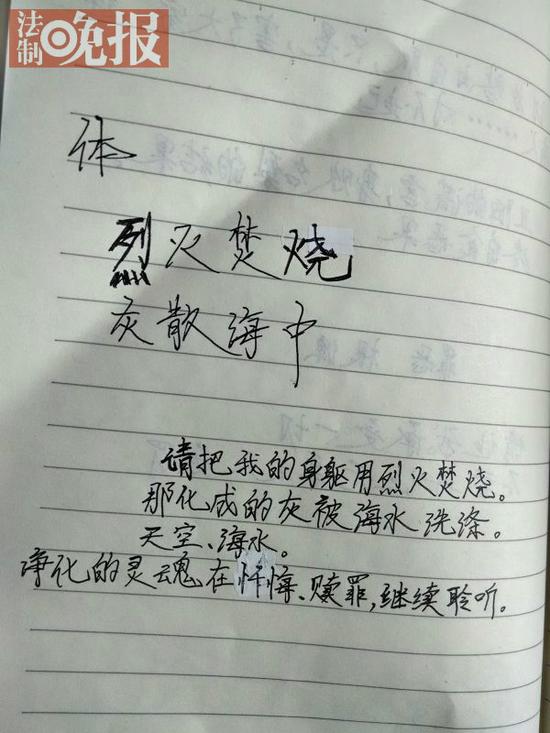 法制晚报
体
烈火焚烧
灰散海中
请把我的身躯用烈火焚烧。
那化成的灰被海水洗涤。
天空、海水。
净化的灵魂在忏悔、赎罪,继续聆听。